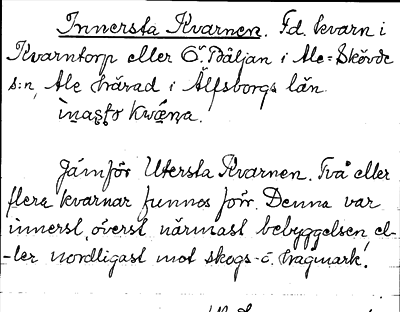 Innersta Kvarnen. F.d. kvarn i
Kvarntorp eller Ö. Båljan i Ale-Skövde
s:n, Ale härad i Älfsborgs län.
Jämför Utersta Kvarnen. Två eller
flera kvarnar funnos förr. Denna var
innerst, överst, närmast bebyggelsen, el-
-ler nordligast mot skogs- o. hagmark!